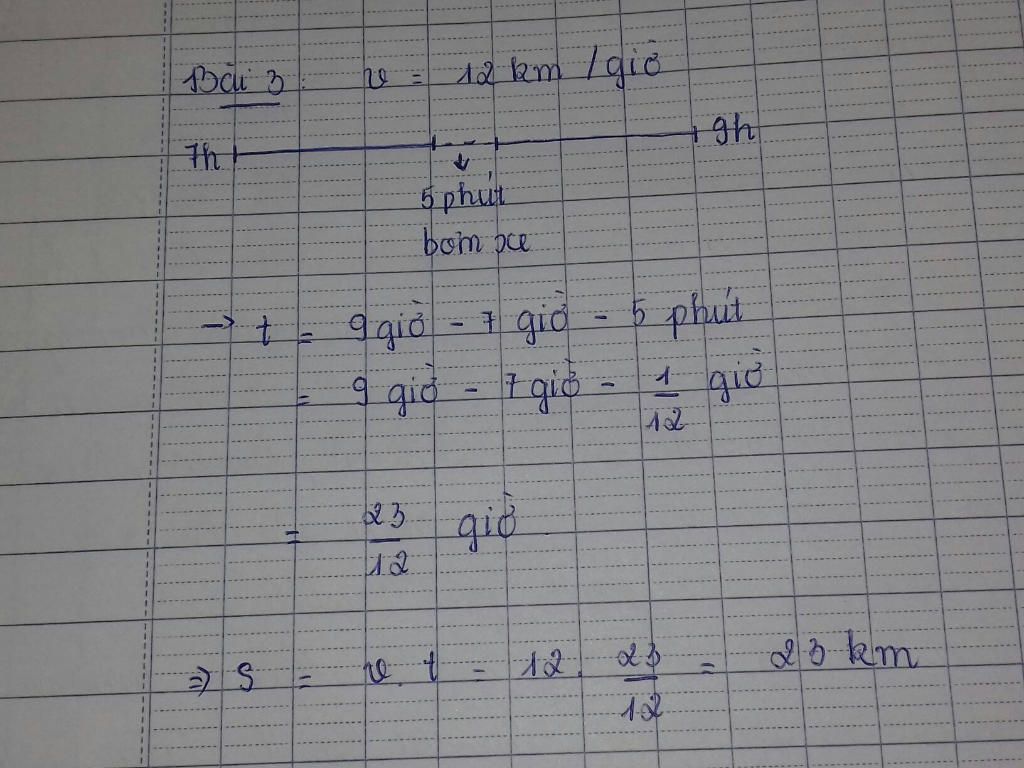 Bài 3: v = 12 km/giờ
7h 9h
5 phút
bơm xe
→ t = 9 giờ - 7 giờ - 5 phút
= 9 giờ - 7 giờ - 1/12 giờ
= 23/12 giờ
⇒ S = v. t = 12. 23/12 = 23 km